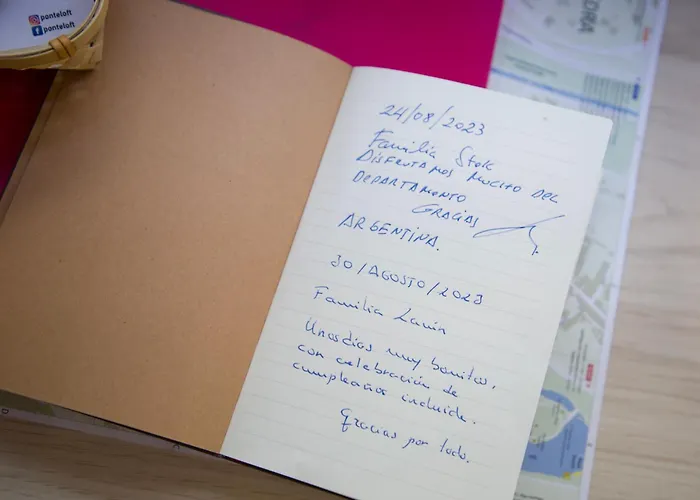 ponteloft
ponteloft
24/08/2023
Familia Stok
DISFRUTAMOS MUCHO DEL
DEPARTAMENTO
GRACIAS
ARGENTINA.
30/AGOSTO/2023
Familia Lavín
Unos días muy bonitos,
con celebración de
cumpleaños incluide.
Gracias por todo.